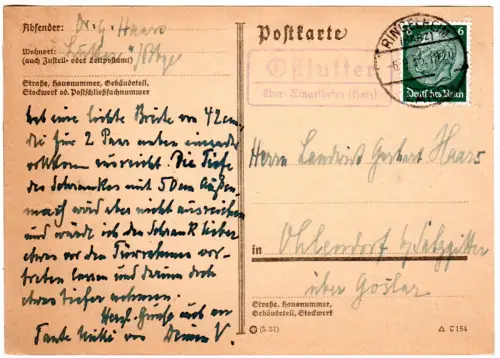 Absender: Dr. G. Haars
Wohnort: Lutter a/Bbge
(auch Zustell- oder Leitpostamt)
Straße, Hausnummer, Gebäudeteil,
Stockwerk od. Postschließfachnummer
hat eine lichte Breite von 42 cm,
die für 2 Paar neben einander
vollkommen ausreicht. Die Tiefe
des Schrankes mit 50 cm Außen-
mass wird aber nicht ausreichen
und würde ich den Schrank lieber
etwas vor den Türrahmen vor-
treten lassen und darum doch
etwas tiefer nehmen.
Herzl. Gruß auch an
Tante von Deinem V.
Postkarte
Ostlutter
über Ringelheim (Harz)
RINGELHEIM
(HARZ)
6
Deutsches Reich
Herrn Landwirt Gerhart Haars
in Ohlendorf b/ Salzgitter
über Goslar
Straße, Hausnummer,
Gebäudeteil, Stockwerk
C 154